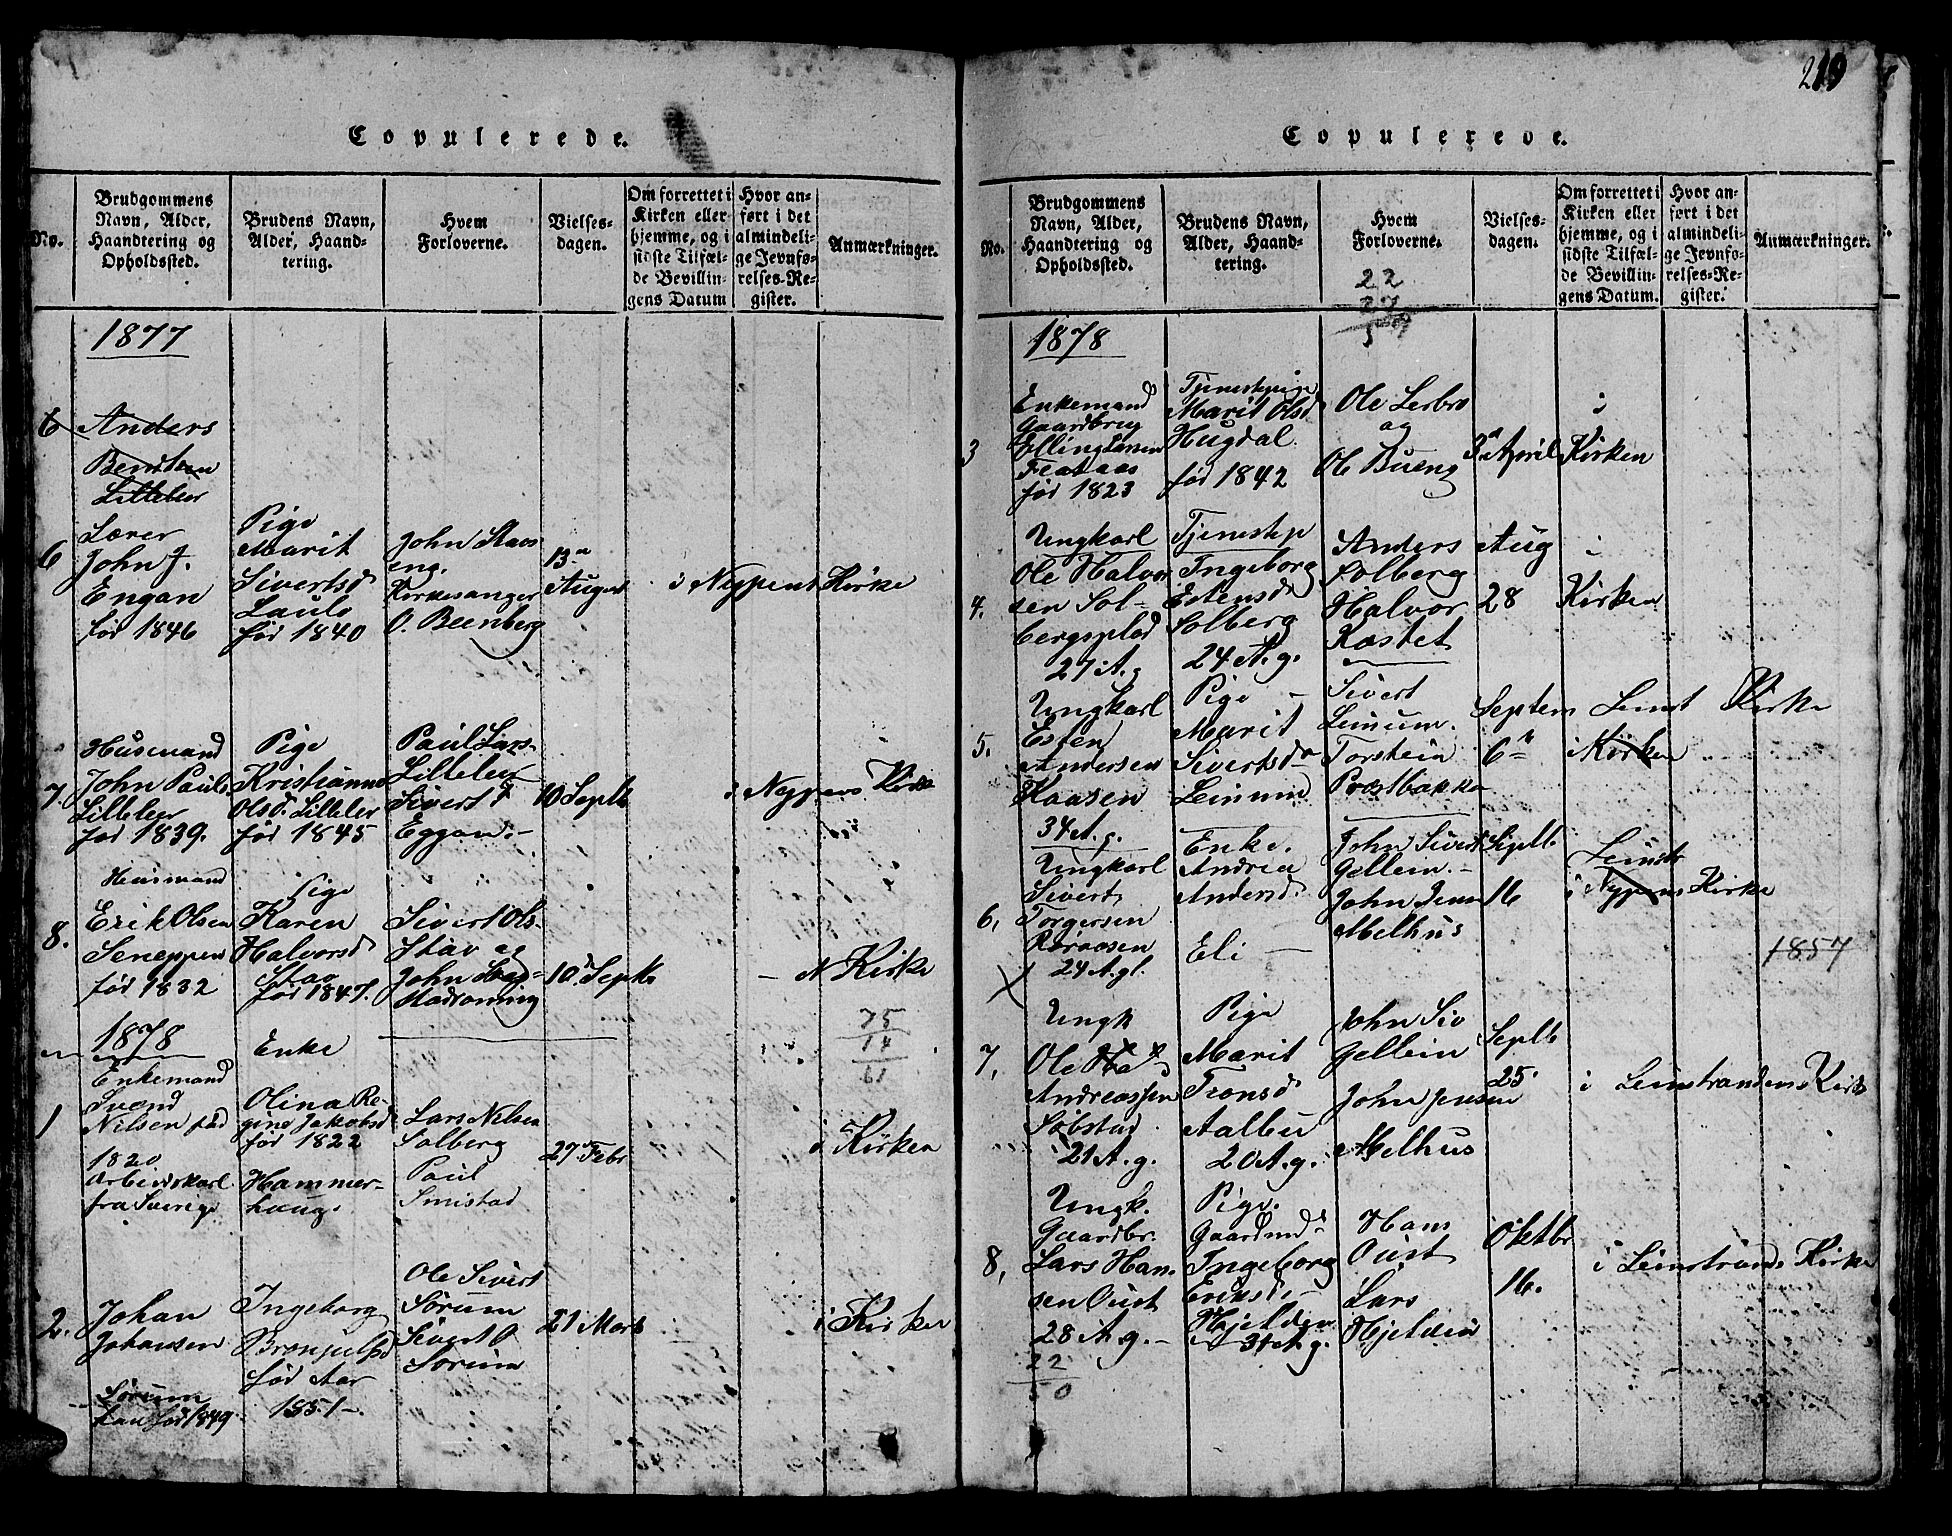 219
Copulerede.
No.
Brudgommens
Navn, Alder,
Haandtering og
Opholdssted.
Brudens Navn,
Alder, Haand-
tering.
Hvem
Forloverne.
Vielses-
dagen.
Om forrettet i
Kirken eller
hjemme, og i
sidste Tilfæl-
de Bevillin-
gens Datum
Hvor an-
ført i det
almindeli-
ge Jevnfø-
relses-Re-
gister.
Anmærkninger.
1877
6
Anders
Lilleler
6
Lærer
John J.
Engan
før 1846
Pige
Marit
Sivertsd
Laulo
før 1840
John Stavs
eng.
Kirkesanger
O. Beenberg
13
August
i Neypens Kirke
7
Husmand
John Pauls
Lilleler
før 1839.
Pige
Kristianna
Olsd. Lilleler
før 1845
Paul Lars-
Lilleler
Sivert
Eggan.-
10 Septb
i Neypens Kirke
8.
Huusmand
Erik Olsen
Seneppen
før 1832
Pige
Karen
Halvorsd
Stav
før 1847.
Sivert Ols-
Stav og
John
10 Septb
- N Kirke
75
14
61
1878
1
Enkemand
Svend
Nilsen fød
1820
Arbeidskarl
fra Sverige
Enke
Olina Re-
gine Jakobsd
før 1822
Hammer-
haug.
Lars Nilsen
Solberg
Paul
Smistad
27 Febr
i Kirken
2.
Johan
Johansen
Sørum
før 1849.
Ingeborg
før Aar
1851-
Ole Sivert
Sørum
Sivert O
Sørum
21 Marts
i Kirken
Copulerede.
No.
Brudgommens
Navn, Alder,
Haandtering og
Opholdssted.
Brudens Navn,
Alder, Haand-
tering.
Hvem
Forloverne.
Vielses-
dagen.
Om forrettet i
Kirken eller
hjemme, og i
sidste Tilfæl-
de Bevillin-
gens Datum.
Hvor an-
ført i det
almindeli-
ge Jevnfø-
relses-Re-
gister.
Anmærkninger.
22
27
1878
3
Enkemand
Gaardbrug
Elling Larsen
før 1823
Tjenestepige
Marit Olsd
Hugdal.
før 1842
Ole Lerbro
og
Ole Bueng
3 April
i
Kirken
4.
Ungkarl
Ole Halvor
sen Sol-
bergsplad
27 A.g
Tjenestep
Ingeborg
Estensd
Solberg
24 A.g.
Anders
Solberg
Halvor
Kastet
Aug
28
i
Kirken
5.
Ungkarl
Esten
Andersen
Kaasen
34 A.g.
Pige -
Marit
Sivertsd
Leinum
Sivert
Leinum.
Torstein
Prøstbakke
Septem
6
Leinst Kirke
i Kirken
6.
Ungkarl
Sivert
Torgersen
24 A.gl.
Enke.
Andrea
Andersd
Eli -
John Sivert
Gellein.-
John Jenn
Melhus
Septb
16
Leinstr
i Neypens Kirke
1857
7,
Ungk
Ole
Andreassen
Søbstad
21 A.g.
Pige
Marit
Tronsd
Aalbu
20 A.g.
John Siv
Gellein
John Jensen
Melhus
Septb
25.
i Leinstrandens Kirk
8,
Ungk.
Gaardbr.
Lars Han-
sen Oust
28 A.g.-
Pige.
Ingeborg
Eriksd.-
Hjelden
31 A.g.
Hans
Oust
Lars
Hjelden
Oktbr
16.
i Leinstrands Kirke
22
50